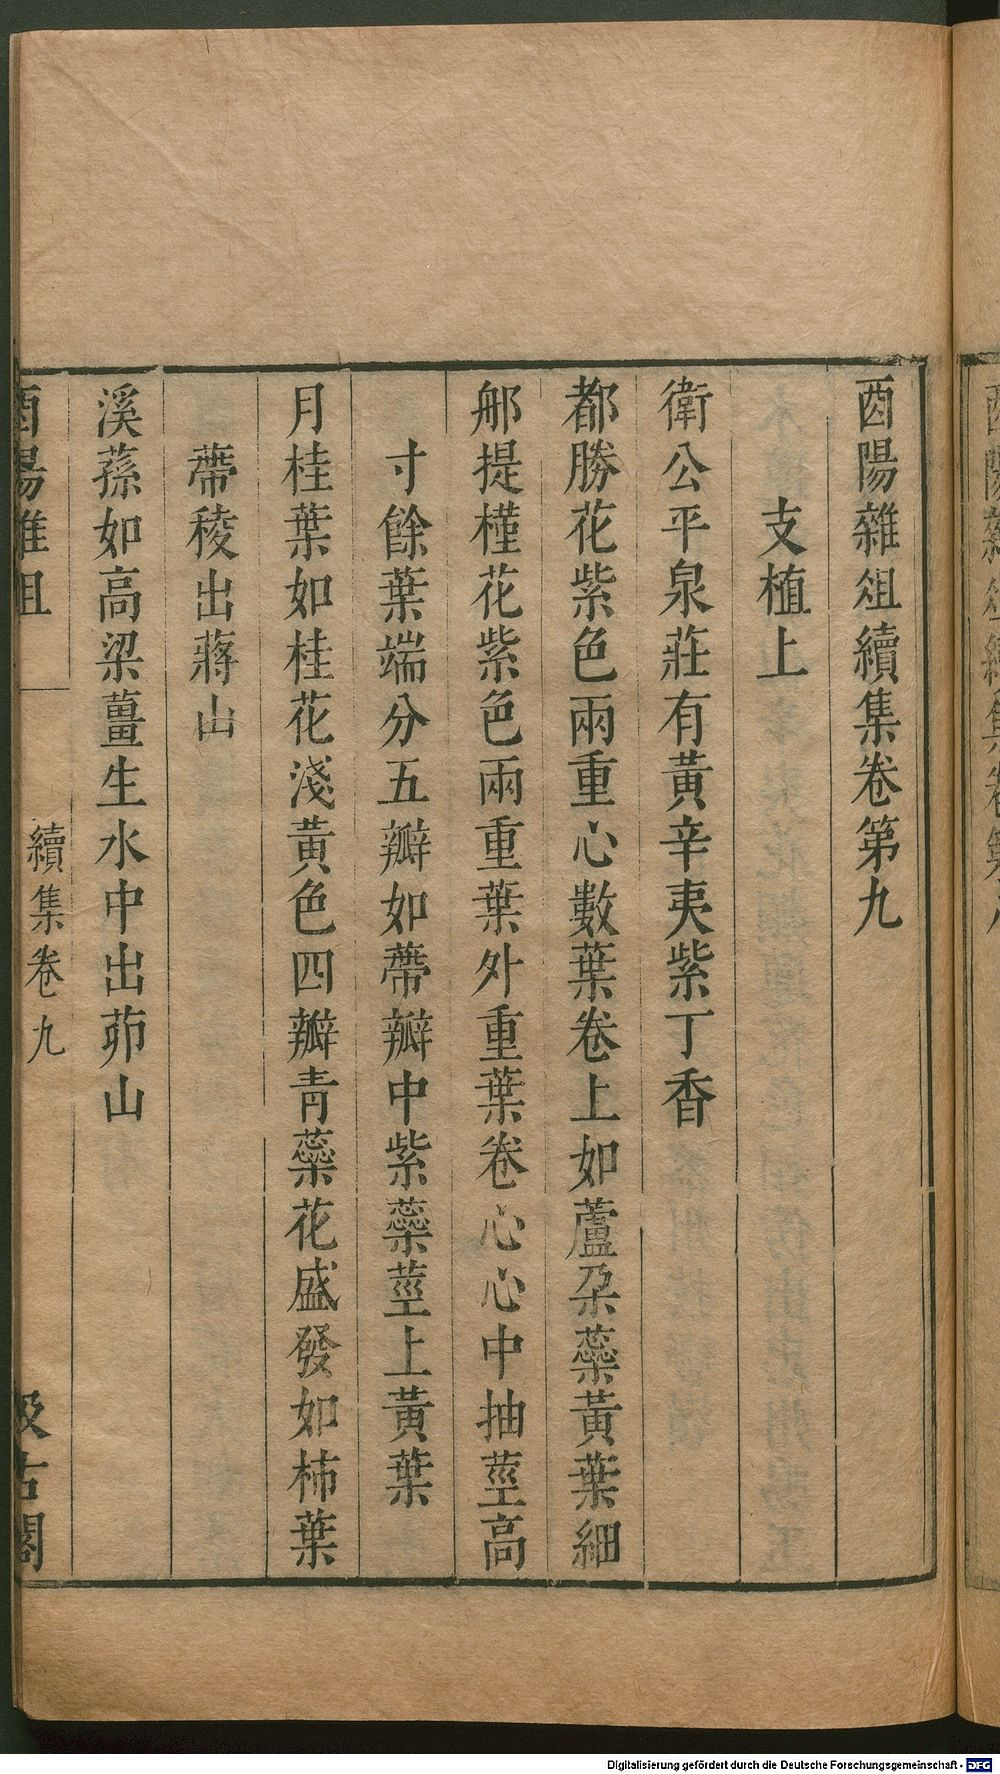 酉陽雜俎續集卷第九
支植上
衛公平泉莊有黃辛夷紫丁香
都勝花紫色兩重心數葉卷上如蘆朶蘂黃葉細
䢴提槿花紫色兩重葉外重葉卷心心中抽莖高
寸餘葉端分五瓣如蔕瓣中紫蘂莖上黃葉
月桂葉如桂花淺黃色四瓣青蘂花盛發如柿葉
蔕稜出蔣山
溪蓀如高梁薑生水中出茆山
酉陽雜俎
續集卷九
汲古閣
Digitalisierung gefördert durch die Deutsche Forschungsgemeinschaft - DFG